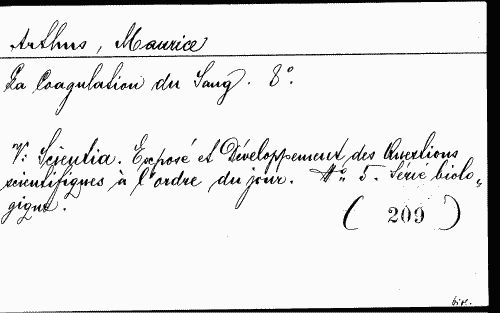 Arthus, Maurice
La Coagulation du Sang. 8°.
V: Scientia. Exposé et Développement des Questions
scientifiques à l'ordre du jour. No. 5. Série biolo„
gique.
( 209 )